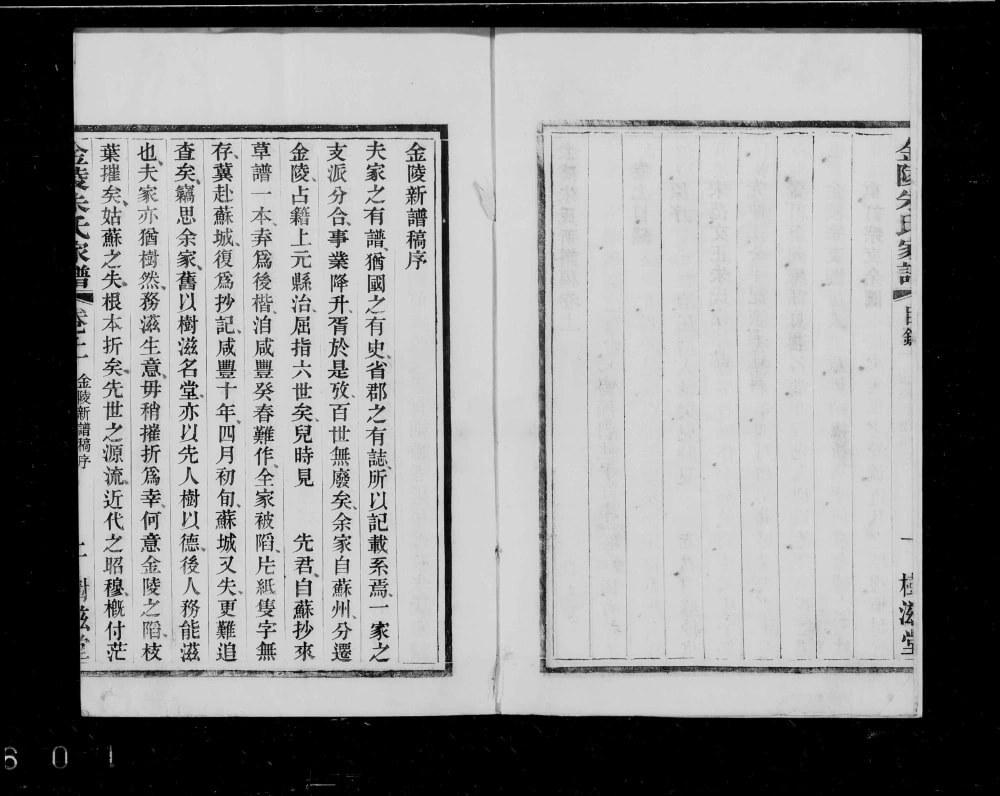 金陵朱氏家譜 目錄 一 樹滋堂
金陵新譜稿序
夫家之有譜、猶國之有史、省郡之有誌、所以記載系焉、一家之
支派分合、事業降升、胥於是攷、百世無廢矣、余家自蘇州、分遷
金陵、占籍上元縣治、屈指六世矣、兒時見 先君自蘇抄來
草譜一本、弆爲後楷、洎咸豐癸春難作、全家被陷、片紙隻字無
存、冀赴蘇城、復爲抄記、咸豐十年、四月初旬、蘇城又失、更難追
查矣、竊思余家、舊以樹滋名堂、亦以先人樹以德、後人務能滋
也、夫家亦猶樹然、務滋生意、毋稍摧折爲幸、何意金陵之陷、枝
葉摧矣、姑蘇之失、根本折矣、先世之源流、近代之昭穆、槪付茫
金陵朱氏家譜 卷上 金陵新譜稿序 一 樹滋堂
601